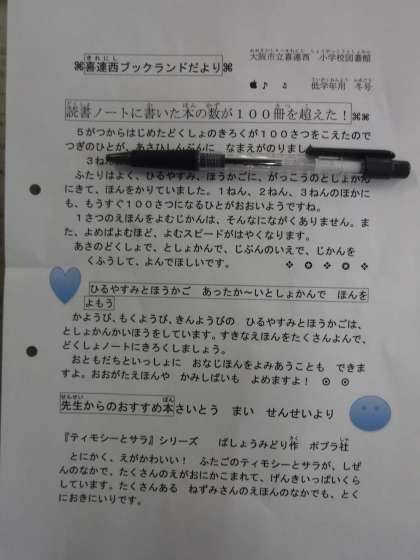 ⌘喜連西ブックランドだより⌘
大阪市立喜連西　小学校図書館
低学年用　冬号
読書ノートに書いた本の数が100冊を超えた！⌘⌘
5がつからはじめたどくしょのきろくが100さつをこえたので
つぎのひとが、あさひしんぶんに　なまえがのりました。
3ねん
ふたりはよく、ひるやすみ、ほうかごに、がっこうのとしょかん
にきて、ほんをかりていました。1ねん、2ねん、3ねんのほかに
も、もうすぐ100さつになるひとがおおいようですね。
1さつのえほんをよむじかんは、そんなにながくありません。ま
た、よめばよむほど、よむスピードがはやくなります。
あさのどくしょで、としょかんで、じぶんのいえで、じかんを
くふうして、よんでほしいです。
ひるやすみとほうかご　あったか～いとしょかんで　ほんを
よもう
かようび、もくようび、きんようびの　ひるやすみとほうかごは、
としょかんかいほうをしています。すきなえほんをたくさんよんで、
どくしょノートにきろくしましょう。
おともだちといっしょに　おなじほんをよみあうことも　できま
すよ。おおがたえほんや　かみしばいも　よめますよ！
先生からのおすすめ本さいとう　まい　せんせいより
『ティモシーとサラ』シリーズ　ばしょうみどり作　ポプラ社
とにかく、えがかわいい！　ふたごのティモシーとサラが、しぜ
んのなかで、たくさんのえがおにかこまれて、げんきいっぱいくら
しています。たくさんある　ねずみさんのえほんのなかでも、とく
におきにいりです。